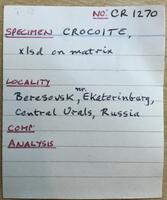 NO: CR 1270
SPECIMEN CROCOITE,
xlsd on matrix
LOCALITY
nr.
Beresovsk, Ekaterinburg,
Central Urals, Russia
COMP.
ANALYSIS